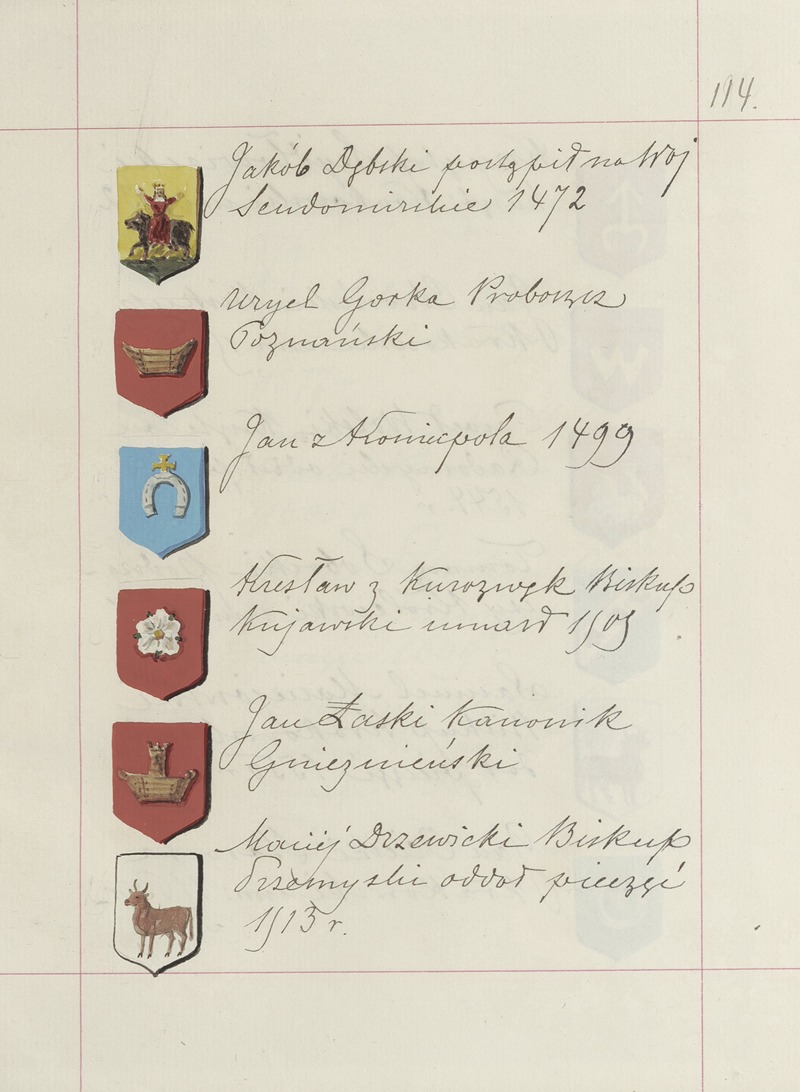 114.
Jakób Dębski postąpił na Woj
Sendomirskie 1472
Uryel Gorka Proboszcz
Poznański
Jan z Koniecpola 1499
Kresław z Kurozwęk Biskup
Kujawski umarł 1503
Jan Łaski Kanonik
Gnieznieński
Maciej Drzewicki Biskup
Przemyski oddał pieczęć
1513 r.